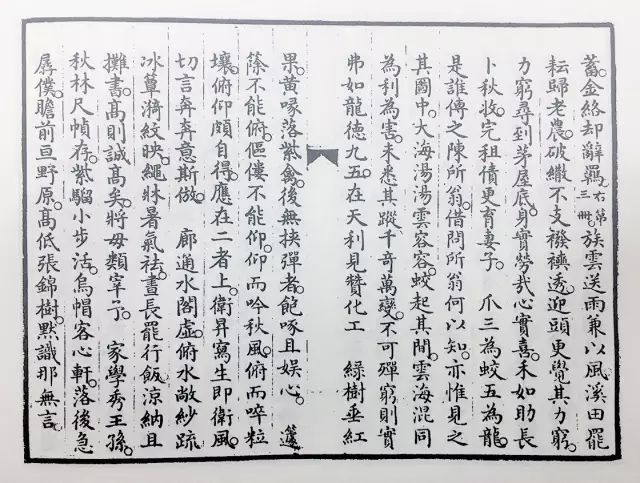 蓄金絡却辭羈右第三冊族雲送雨兼以風溪田罷
耘歸老農破繖不支襏襫透迎頭更覺其力窮
力窮尋到茅屋底身實勞哉心實喜未如助長
卜秋收完租債更育妻子 爪三為蛟五為龍
是誰傳之陳所翁借問所翁何以知亦惟見之
其圖中大海湯湯雲容容蛟起其間雲海混同
為利為害未悉其蹤千奇萬變不可殫窮則實
弗如龍德九五在天利見贊化工 緑樹垂紅
果黃喙落紫禽後無挾彈者飽啄且娛心 籧
篨不能俯傴僂不能仰仰而吟秋風俯而啐粒
壤俯仰頗自得應在二者上衛昇寫生即衛風
切言奔奔意斯倣 廊通水閣虛俯水敞紗疏
冰簟漪紋映繩牀暑氣祛晝長罷行飯涼納且
攤書高則誠高矣將毋類宰予 家學秀王孫
秋林尺幀存紫騮小步活烏帽客心軒落後急
孱僕瞻前亘野原高低張錦樹黙識那無言